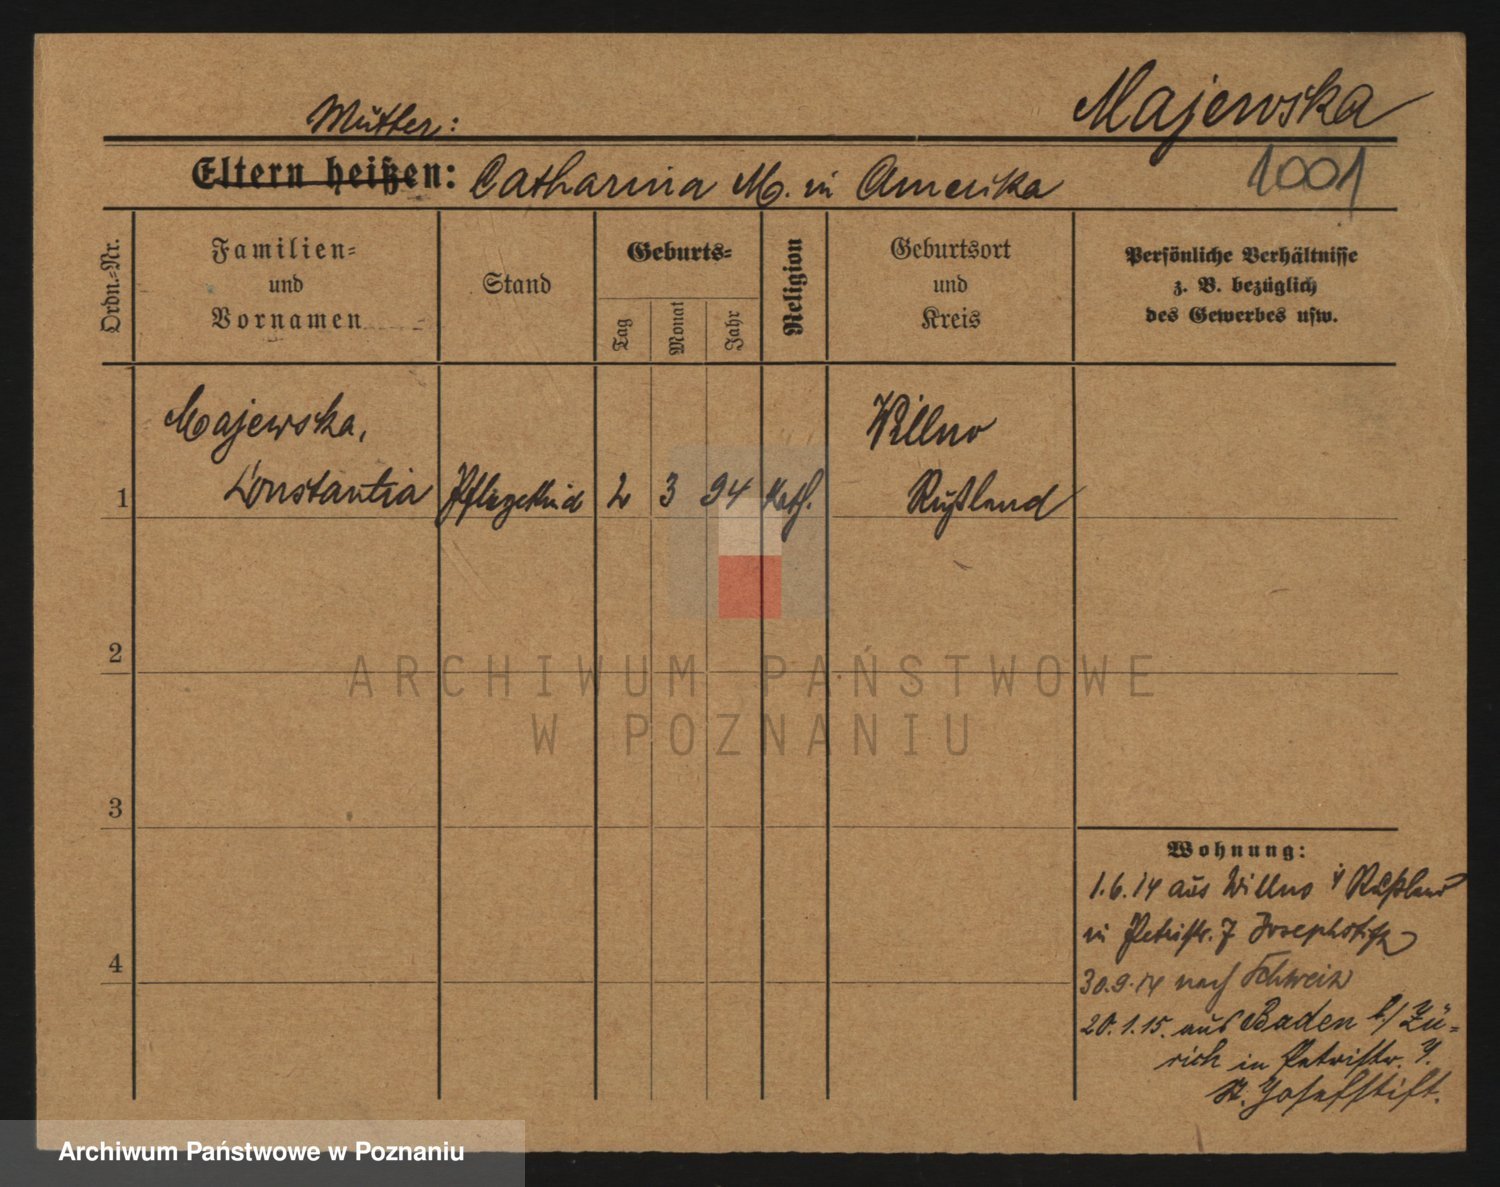 Majewska
Mutter:
Eltern heißen: Catharina M. in Amerika
1001
Ordn.-Nr.
Familien-
und
Vornamen
Stand
Geburts-
Tag
Monat
Jahr
Religion
Geburtsort
und
Kreis
Persönliche Verhältnisse
z. B. bezüglich
des Gewerbes usw.
Majewska,
Willno
1 Constantia Pflegekind 2 3 94 kath. Rußland
2
3
4
Wohnung:
1.6.14 aus Willno i/ Rußland
in Petristr. 7 Josephstift
30.9.14 nach Schweiz
20.1.15. aus Baden b/ Zü-
rich in Petristr. 7.
St. Josefstift.
ARCHIWUM PAŃSTWOWE
W POZNANIU
Archiwum Państwowe w Poznaniu